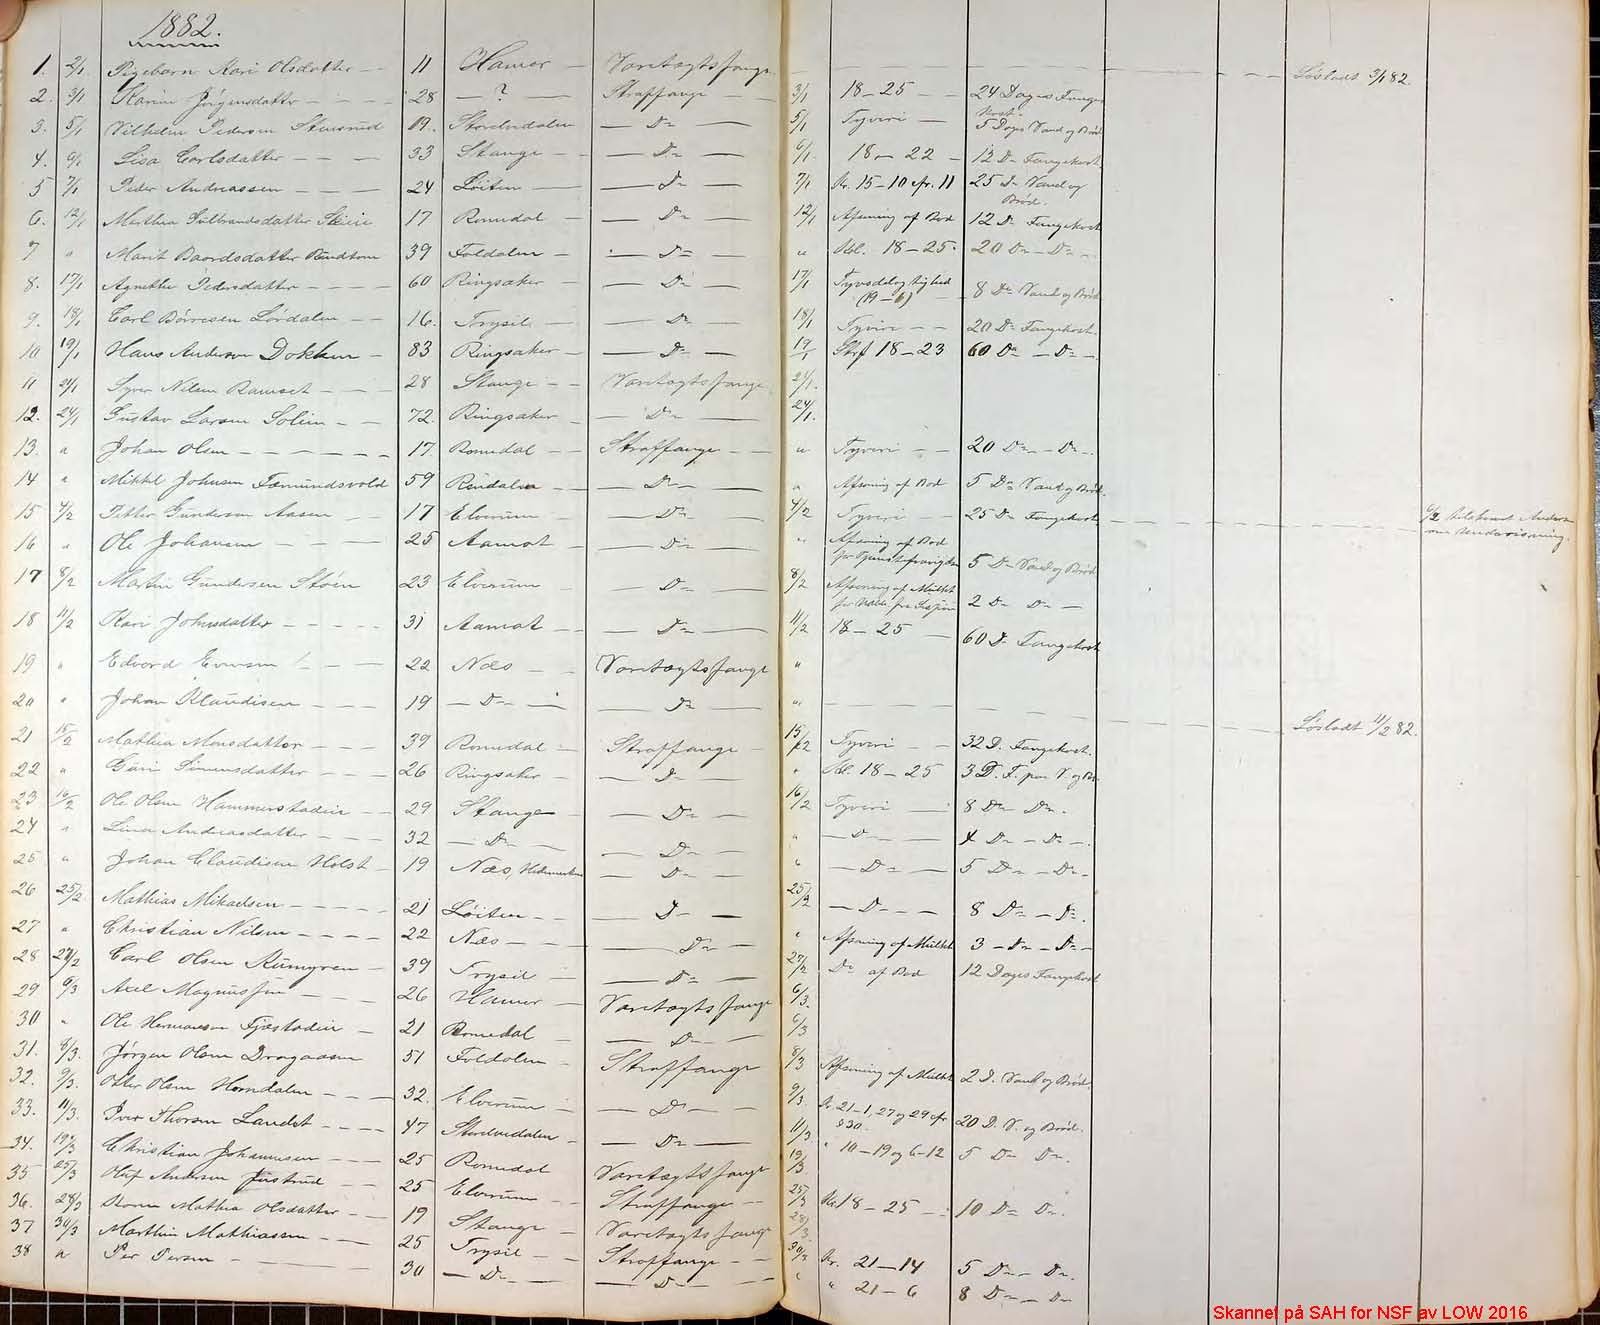 1882.
1. 2/1 Pigebarn Kari Olsdatter — 11 Hamar — Varetægtsfange — — — Løsladt 3/1 82.
2. 3/1 Karine Jørgensdatter — — — 28 — ? — Straffange — — 3/1 18–25 — — 24 Dages Fangekost.
3. 5/1 Vilhelm Pedersen Stensrud 19. Storelvedalen — D= — 5/1 Tyveri — 5 Dages Vand og Brød
4. 6/1 Lisa Carlsdatter — — — 33 Stange — — D= — 6/1. 18–22 — 12 D= Fangekost.
5 7/1 Peder Andreassen — — — 24 Løiten — — D= — 7/1 Kr. 15–10 cfr. 11 25 D= Vand og Brød.
6. 12/1 Marthea Gulbrandsdatter 17 Romedal — — D= — 12/1 Afsoning af Bod 12 D= Fangekost
7 " Marit Baardsdatter 39 Foldalen — — D= — " Kl. 18–25. 20 D= — D= —
8. 17/1 Agnethe Pedersdatter — — 60 Ringsaker — — D= — 17/1 Tyvsdelagtighed (19–6) — 8 D= Vand og Brød
9. 18/1 Carl Børresen Lørdalen — — 16. Trysil — — D= — 18/1 Tyveri — — 20 D= Fangekost.
10 19/1 Hans Andersen Dokken — 83 Ringsaker — — D= — 19/1 Strf 18–23 60 D= — D= —
11 21/1 Syver Nilsen Ramset — — 28 Stange — — Varetægtsfange 21/1.
12. 24/1 Gustav Larsen Solein — — 72. Ringsaker — D= — 24/1.
13. " Johan Olsen — — — — — 17. Romedal — Straffange — — " Tyveri — — 20 D= — D= —.
14 " Mikkel Johnsen Fæmundsvold 59 Rendalen — — D= — " Afsoning af Bod 5 D= Vand og Brød.
15 4/2 Petter Gundersen Aasen — 17 Elverum — — D= — 4/2 Tyveri — 25 D= Fangekost — — — 6/2
16 " Ole Johansen — — — 25 Aamot — — D= — " Afsoning af Bod 5 D= Vand og Brød
17 8/2 Martin Gundersen Støen 23 Elverum — D= — 8/2 Afsoning af Mulkt 2 D= D= —
18 11/2 Kari Johnsdatter — — — 31 Aamot — — D= — 11/2 18–25 — 60 D. Fangekost
19 " Edvard Evensen — — — 22 Næs — — Varetægtsfange "
20 " Johan Klaudisen — — — 19 — D= — — D= — " — — — Løsladt 11/2 82.
21 15/2 Mathea Monsdatter — — — 39 Romedal — Straffange — 15/2 Tyveri — — 32 D. Fangekost.
22 " Guri Simensdatter — — — 26 Ringsaker — — D= — " Kl. 18–25 3 D. F. paa V. og Br.
23 16/2 Ole Olsen Hammerstadeie — — 29 Stange — D= — 16/2 Tyveri — 8 D= D= .
24 " Lina Andreasdatter — — — 32 — D= — — D= — " — D — — 4 D= — D= —.
25 " Johan Claudisen Holst — 19 Næs, Hedemarken — D= — " — D= — 5 D= — D= .
26 25/2 Mathias Mikaelsen — — — — 21 Løiten — — — D= — 25/2 — D — — 8 D= — D= .
27 " Christian Nilsen — — — — 22 Næs — — — D= — " Afsoning af Mulkt 3 — D= — D= —
28 27/2 Carl Olsen — 39 Trysil — — D= — 27/2 D= af Bod 12 Dages Fangekost
29 6/3 Axel Magnussen — — — — 26 Hamar — Varetægtsfange 6/3.
30 " Ole Hermansen Fjæstadeie — 21 Romedal — D= — 6/3
31. 8/3. Jørgen Olsen Dragaasen 51 Foldalen — Straffange 8/3 Afsoning af Mulkt 2 D. Vand og Brød.
32. 9/3. Otter Olsen Horndalen — — — 32. Elverum — — D= — 9/3. Kr. 21–1, 27 og 29 cfr. § 30. 20 D. V. og Brød.
33. 11/3. Iver Thorsen Landet — — — 47 Storelvedalen — D= — 11/3 " 10–19 og 6–12 5 D= D= .
34. 19/3 Christian Johannesen — — — 25 Romedal Varetægtsfange 19/3.
35 25/3 Oluf Andersen — — 25 Elverum — Straffange — 25/3 Kr. 18–25 — 10 D= D= .
36. 28/3 Mathea Olsdatter — — 19 Stange — Varetægtsfange 28/3.
37 30/3 Marthin Mathiassen — — 25 Trysil — — Straffange — — 30/3 Kr. 21–14 5 D= — D= .
38 " Per Persen — — — 30 — D= — — D= — " " 21–6 8 D= — D=
Skannet på SAH for NSF av LOW 2016